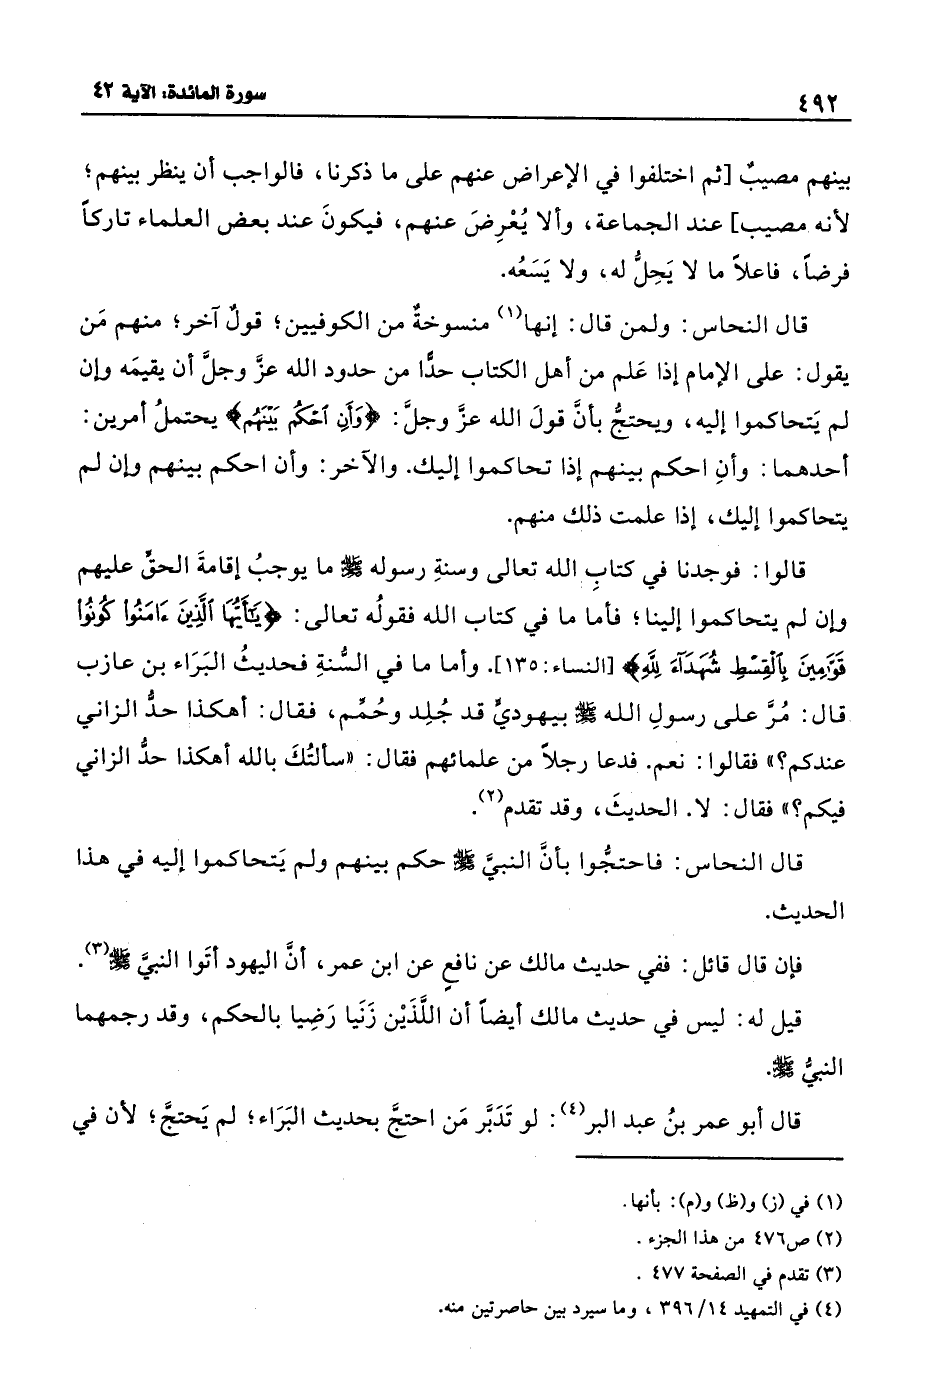 ٤٩٢
سورة المائدة: الآية ٤٢
بينهم مصيبٌ [ثم اختلفوا في الإعراض عنهم على ما ذكرنا، فالواجب أن ينظر بينهم؛
لأنه مصيب] عند الجماعة، وألا يُعْرِضَ عنهم، فيكونَ عند بعض العلماء تاركاً
فرضاً، فاعلاً ما لا يَحِلُّ له، ولا يَسَعُه.
قال النحاس: ولمن قال: إنها(١) منسوخةٌ من الكوفيين؛ قولٌ آخر؛ منهم مَن
يقول: على الإمام إذا عَلم من أهل الكتاب حدًّا من حدود الله عزَّ وجلَّ أن يقيمَه وإن
لم يَتحاكموا إليه، ويحتجُّ بأنَّ قولَ الله عزَّ وجلَّ: ﴿وَأَنِ ٱحْكُم بَيْنَهُم﴾ يحتملُ أمرين:
أحدهما: وأنِ احكم بينهم إذا تحاكموا إليك. والآخر: وأن احكم بينهم وإن لم
يتحاكموا إليك، إذا علمت ذلك منهم.
قالوا: فوجدنا في كتابِ الله تعالى وسنةِ رسوله ﷺ ما يوجبُ إقامةَ الحقِّ عليهم
وإن لم يتحاكموا إلينا؛ فأما ما في كتاب الله فقولُه تعالى: ﴿يَٰٓأَيُّهَا ٱلَّذِينَ ءَامَنُوا۟ كُونُوا۟
قَوَّٰمِينَ بِٱلْقِسْطِ شُهَدَآءَ لِلَّهِ﴾ [النساء: ١٣٥]. وأما ما في السُّنةِ فحديثُ البَرَاء بن عازب
قال: مُرَّ على رسولِ الله ﷺ بيهوديٍّ قد جُلِد وحُمِّم، فقال: أهكذا حدُّ الزاني
عندكم؟» فقالوا: نعم. فدعا رجلاً من علمائهم فقال: «سألتُكَ بالله أهكذا حدُّ الزاني
فيكم؟» فقال: لا. الحديثَ، وقد تقدم(٢).
قال النحاس: فاحتجُّوا بأنَّ النبيَّ ﷺ حكم بينهم ولم يَتحاكموا إليه في هذا
الحديث.
فإن قال قائل: ففي حديث مالك عن نافعٍ عن ابن عمر، أنَّ اليهود أتَوا النبيَّ ﷺ(٣).
قيل له: ليس في حديث مالك أيضاً أن اللَّذَيْن زَنَيا رَضِيا بالحكم، وقد رجمهما
النبيُّ ﷺ.
قال أبو عمر بنُ عبد البر(٤): لو تَدَبَّر مَن احتجَّ بحديث البَرَاء؛ لم يَحتجَّ؛ لأن في
(١) في (ز) و(ظ) و(م): بأنها.
(٢) ص٤٧٦ من هذا الجزء .
(٣) تقدم في الصفحة ٤٧٧ .
(٤) في التمهيد ١٤/ ٣٩٦ ، وما سيرد بين حاصرتين منه.